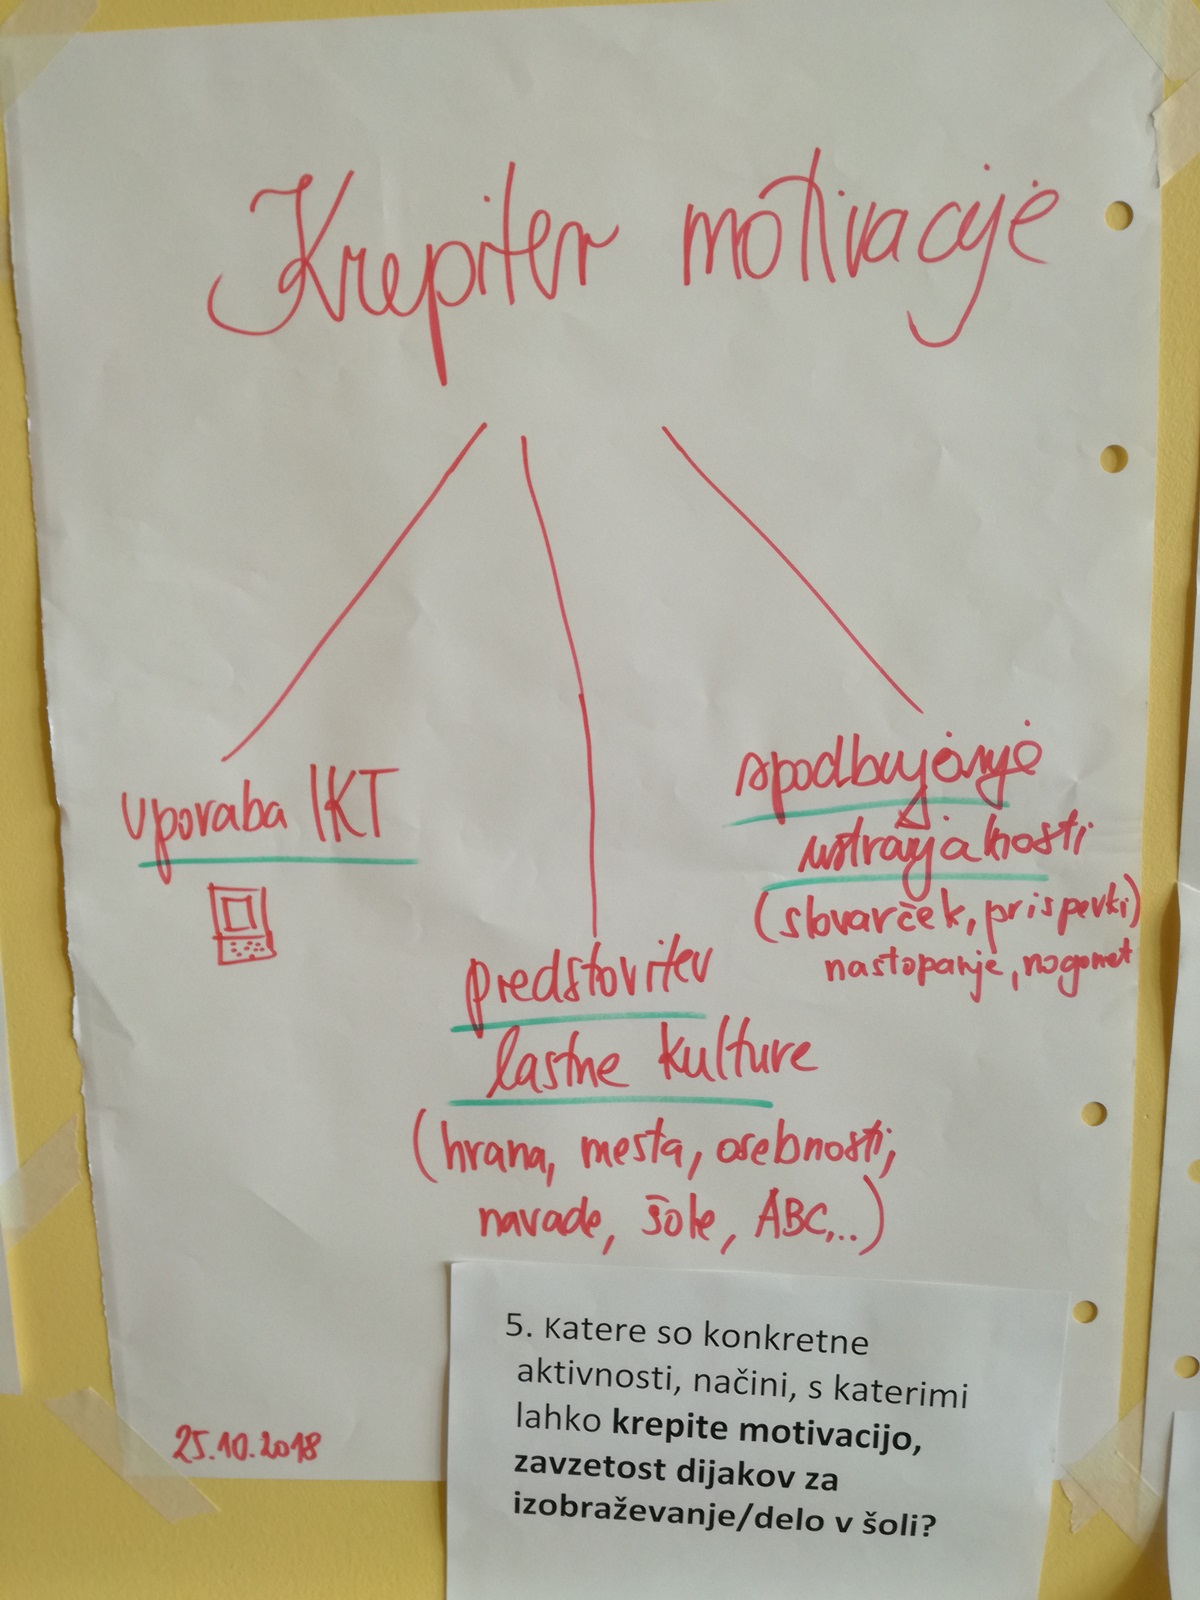 Krepitev motivacije
uporaba IKT
predstavitev
lastne kulture
(hrana, mesta, osebnosti,
navade, šole, ABC,..)
spodbujanje
ustvarjalnosti
(slovarček, prispevki)
nastopanje, nogomet
25.10.2018
5. Katere so konkretne
aktivnosti, načini, s katerimi
lahko krepite motivacijo,
zavzetost dijakov za
izobraževanje/delo v šoli?